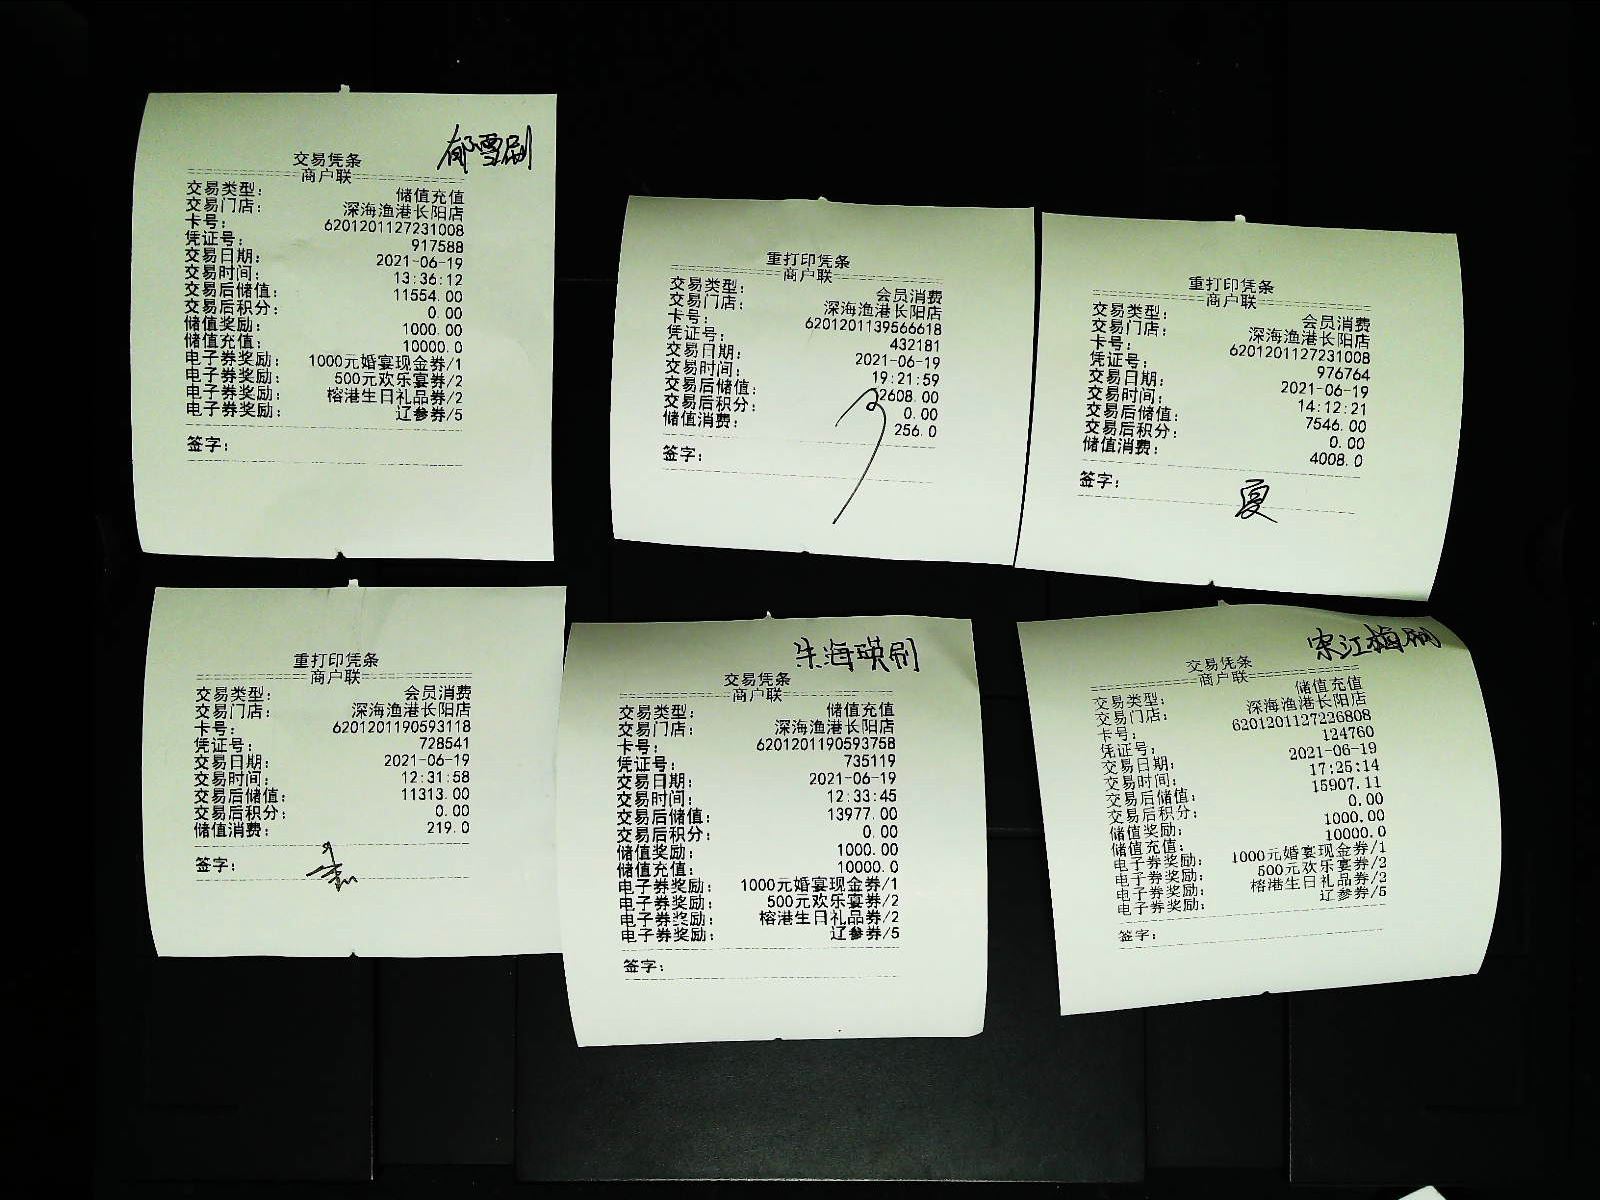 郁雪刷
交易凭条
商户联
交易类型： 储值充值
交易门店： 深海渔港长阳店
卡号： 6201201127231008
凭证号： 917588
交易日期： 2021-06-19
交易时间： 13:36:12
交易后储值： 11554.00
交易后积分： 0.00
储值奖励： 1000.00
储值充值： 10000.0
电子券奖励： 1000元婚宴现金券/1
电子券奖励： 500元欢乐宴券/2
电子券奖励： 榕港生日礼品券/2
电子券奖励： 辽参券/5
签字：
重打印凭条
商户联
交易类型： 会员消费
交易门店： 深海渔港长阳店
卡号： 6201201139566618
凭证号： 432181
交易日期： 2021-06-19
交易时间： 19:21:59
交易后储值： 2608.00
交易后积分： 0.00
储值消费： 256.0
签字：
重打印凭条
商户联
交易类型： 会员消费
交易门店： 深海渔港长阳店
卡号： 6201201127231008
凭证号： 976764
交易日期： 2021-06-19
交易时间： 14:12:21
交易后储值： 7546.00
交易后积分： 0.00
储值消费： 4008.0
签字： 夏
重打印凭条
商户联
交易类型： 会员消费
交易门店： 深海渔港长阳店
卡号： 6201201190593118
凭证号： 728541
交易日期： 2021-06-19
交易时间： 12:31:58
交易后储值： 11313.00
交易后积分： 0.00
储值消费： 219.0
签字：
朱海瑛刷
交易凭条
商户联
交易类型： 储值充值
交易门店： 深海渔港长阳店
卡号： 6201201190593758
凭证号： 735119
交易日期： 2021-06-19
交易时间： 12:33:45
交易后储值： 13977.00
交易后积分： 0.00
储值奖励： 1000.00
储值充值： 10000.0
电子券奖励： 1000元婚宴现金券/1
电子券奖励： 500元欢乐宴券/2
电子券奖励： 榕港生日礼品券/2
电子券奖励： 辽参券/5
签字：
宋江梅刷
交易凭条
商户联
交易类型： 储值充值
交易门店： 深海渔港长阳店
卡号： 6201201127226808
凭证号： 124760
交易日期： 2021-06-19
交易时间： 17:25:14
交易后储值： 15907.11
交易后积分： 0.00
储值奖励： 1000.00
储值充值： 10000.0
电子券奖励： 1000元婚宴现金券/1
电子券奖励： 500元欢乐宴券/2
电子券奖励： 榕港生日礼品券/2
电子券奖励： 辽参券/5
签字：